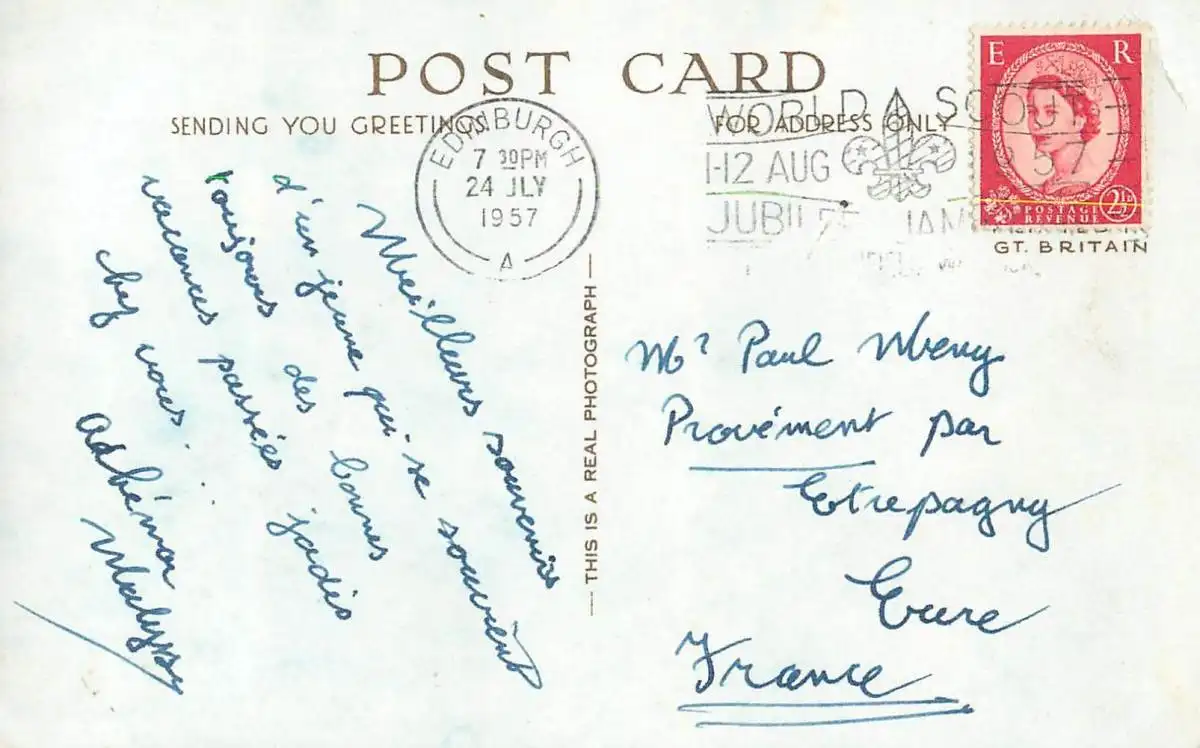 POST CARD
SENDING YOU GREETINGS
FOR ADDRESS ONLY
EDINBURGH
7 30PM
24 JLY
1957
A
WORLD SCOUT
1-12 AUG 1957
JUBILEE JAM
E R
POSTAGE
REVENUE
2½D
GT. BRITAIN
THIS IS A REAL PHOTOGRAPH
Meilleurs souvenirs
d'un jeune qui se souvient
toujours des bonnes
vacances passées jadis
chez vous.
Mr Paul
Provémont par
Etrepagny
Eure
France